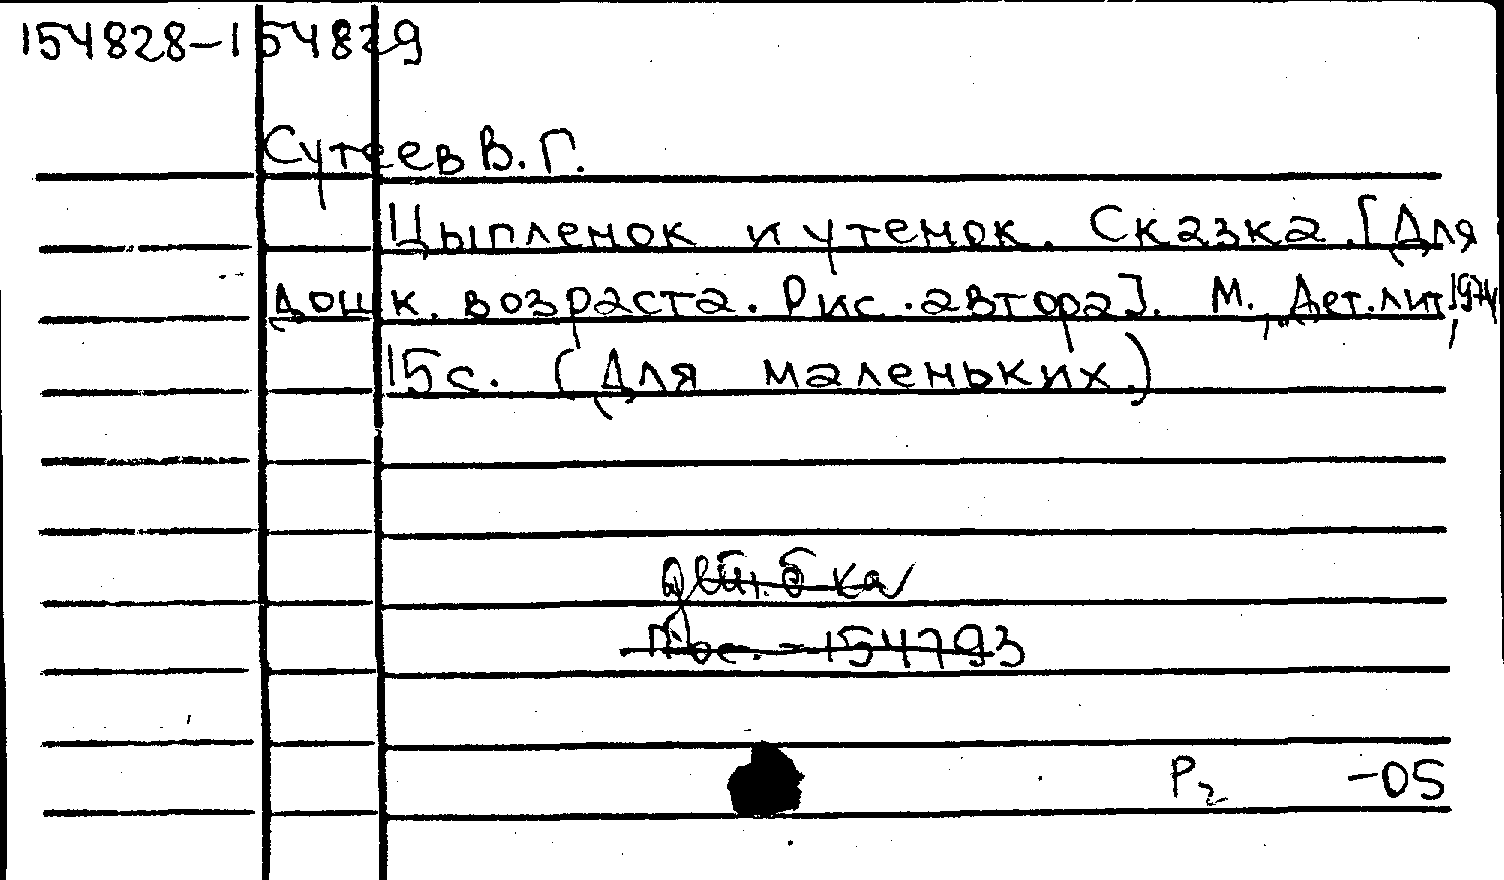 154828-154829
Сутеев В. Г.
Цыпленок и утенок. Сказка. [Для
дошк. возраста. Рис. автора]. М., Дет. лит, 1974,
15 с. (Для маленьких)
б-ка
Пос. - 154793
Р2 -05